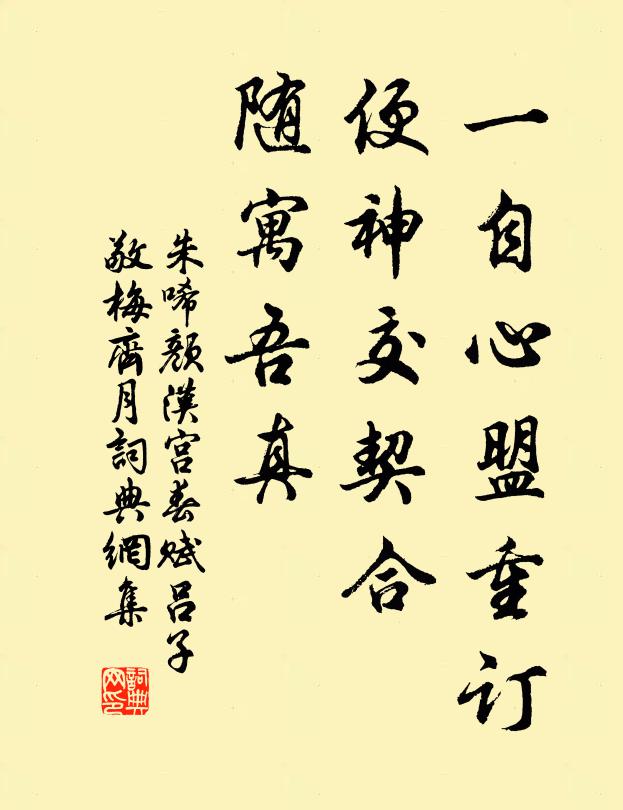 一自心盟重订
便神交契合
随寓吾真
朱唏颜漢宫春赋吕子
敬梅齋月詞典網集
詞典网印